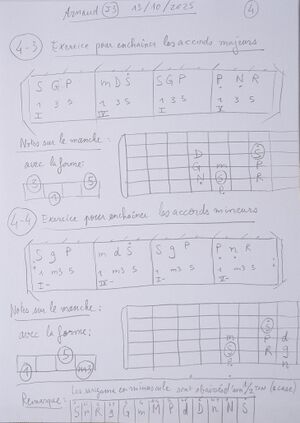 Arnaud J3 13/10/2025 4
4-3 Exercice pour enchaîner les accords majeurs
S G P m D Ṡ S G P P N R
1 3 5 1 3 5 1 3 5 1 3 5
I IV I V
Notes sur le manche :
avec la forme :
D S
G m P
N S R
3 5
1
4-4 Exercice pour enchaîner les accords mineurs
S g P m d Ṡ S g P P n R
1 m3 5 1 m3 5 1 m3 5 1 m3 5
I- IV- I-
Notes sur le manche :
avec la forme :
5
1 m3
m S R
P R d
g
n
Les
en minuscule sont
d'un 1/2 ton (1 case)
Remarque : S r R g G m M P d D n N S